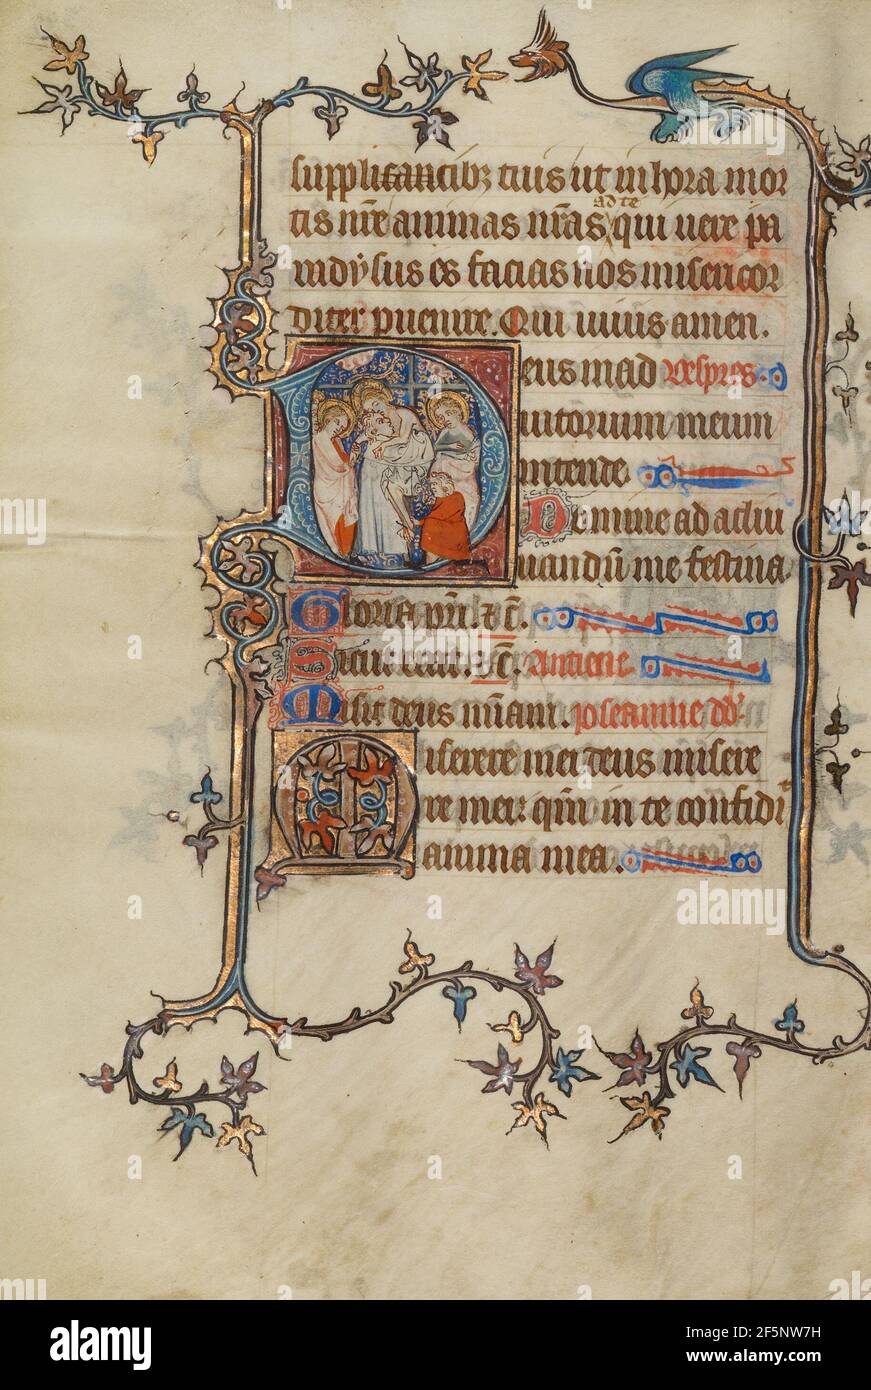 supplicancibus tuis ut in hora mor
tis nr̃e animas nr̃as ad te qui uere pa
radysus es facias nos misericor
diter peruenire. Qui uiuis amen.
Deus in ad vespres.
iutorium meum
intende
Domine ad adiu
uandũ me festina
Gloria pr̃i. ⁊ c̃.
Sicut erat. ⁊ c̃. Antiene
Misit deus
Miserere mei deus misere
re mei: qm̃ in te confidit
anima mea.
alamy
Image ID: 2F5NW7H
www.alamy.com